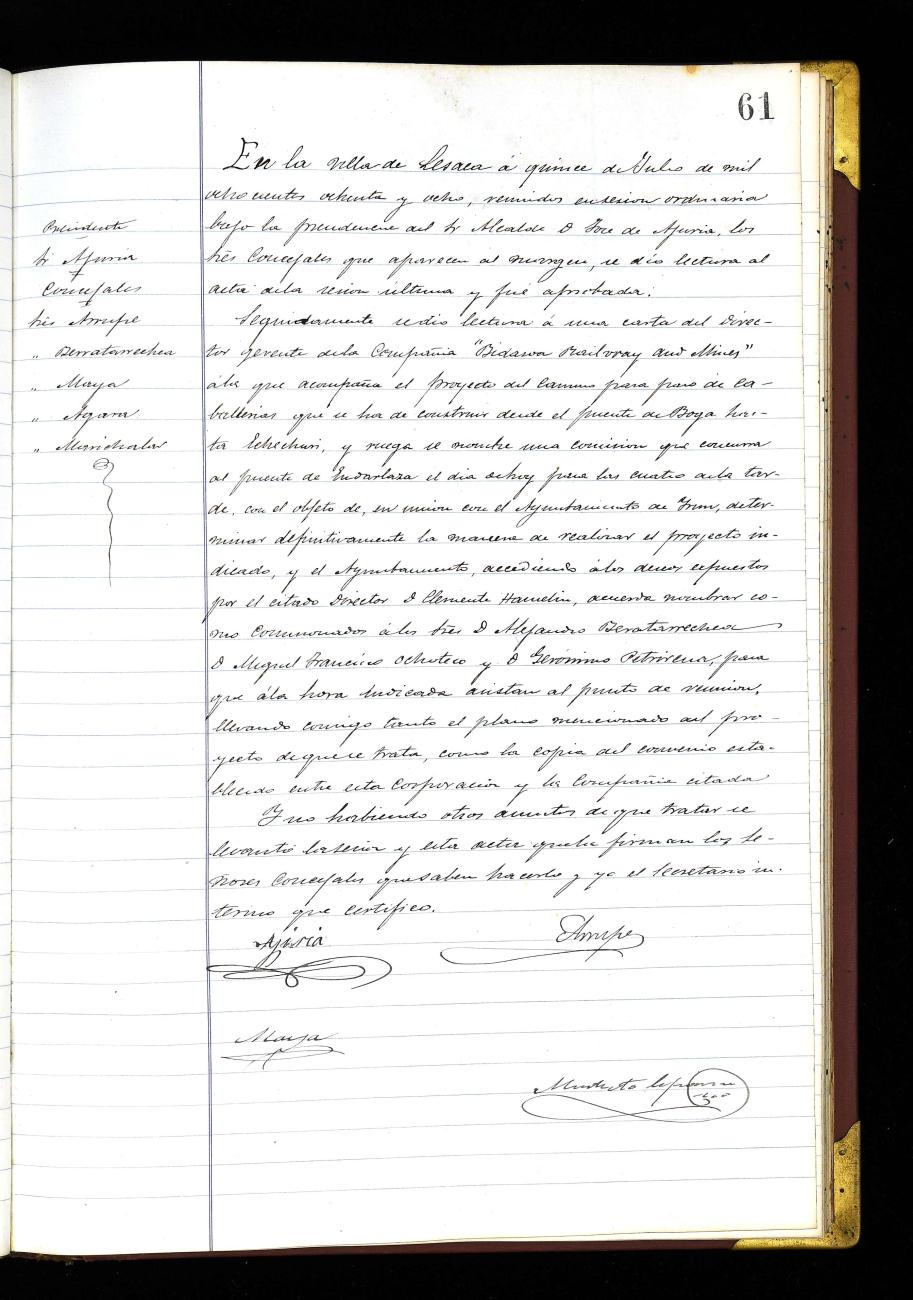 61
En la villa de Lesaca á quince de Julio de mil
ochocientos ochenta y ocho, reunidos en sesion ordinaria
bajo la presidencia del Sr Alcalde D Jose de Ajuria, los
Sres Concejales que aparecen al margen, se dio lectura al
acta de la sesion última y fué aprobada.
Seguidamente se dio lectura á una carta del Direc-
tor gerente de la Compañia "Bidasoa Railway and Mines"
á la que acompaña el proyecto del Camino para paso de ca-
ballerias que se ha de construir desde el puente de Boga has-
ta Echechuri, y ruega se nombre una comision que concurra
al puente de Endarlaza el dia de hoy para las cuatro de la tar-
de, con el objeto de, en union con el Ayuntamiento de Irun, deter-
minar definitivamente la manera de realizar el proyecto in-
dicado, y el Ayuntamiento, accediendo á los deseos espuestos
por el citado Director D Clemente Hamelin, acuerda nombrar co-
mo comisionados á los Sres D Alejandro Beratarrechea
D Miguel Francisco Ochoteco y D Gerónimo Petrirena, para
que á la hora indicada asistan al punto de reunion,
llevando consigo tanto el plano mencionado del pro-
yecto de que se trata, como la copia del convenio esta-
blecido entre esta Corporacion y la Compañia citada
Y no habiendo otros asuntos de que tratar se
levantó la sesion y esta acta que la firman los Se-
ñores Concejales que saben hacerlo y yo el Secretario in-
terino que certifico.
Presidente
Sr Ajuria
Concejales
Sres Arrupe
" Berratarrechea
" Maya
" Agara
" Marichalar
Ajuria
Arrupe
Maya
Modesto